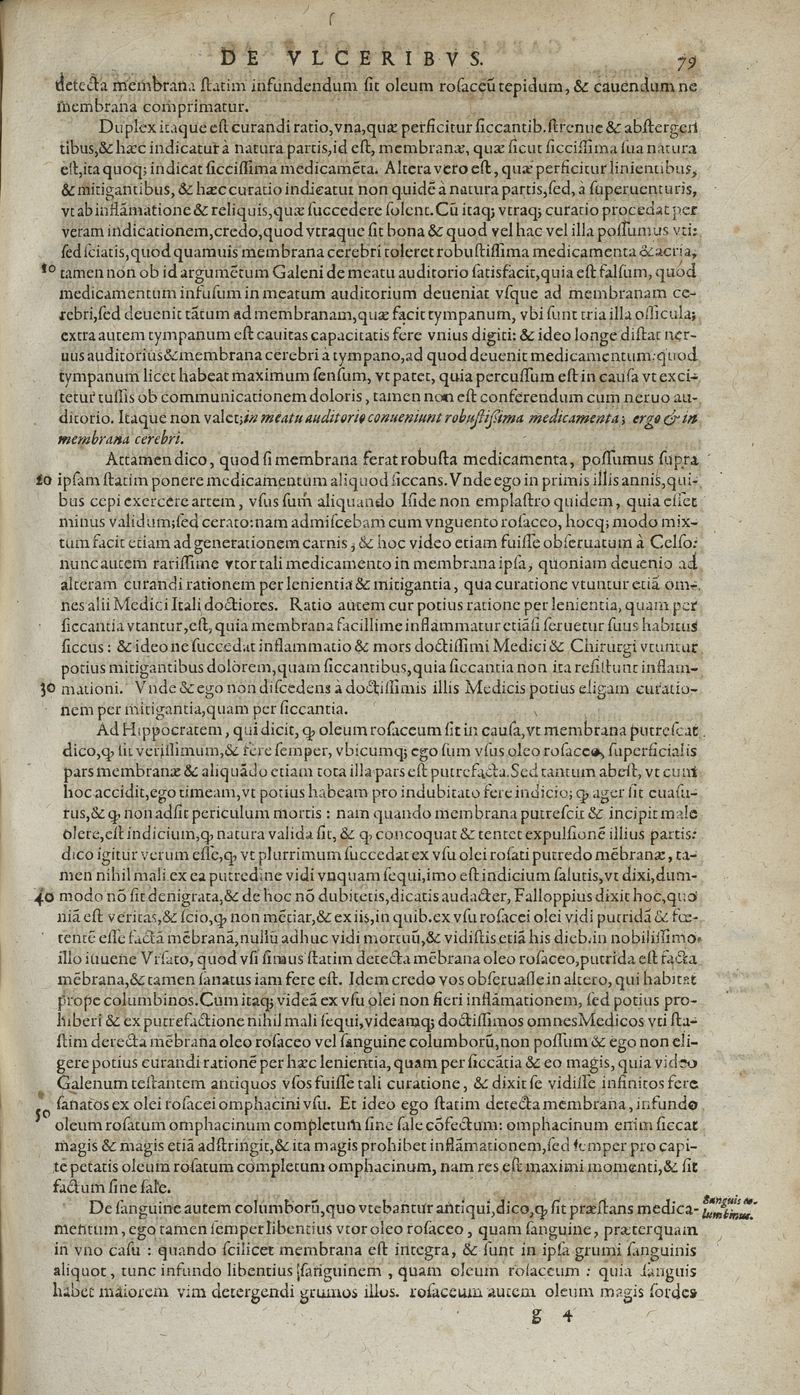 DE VLCERIBVS. 79
detecta membrana ſtatim infundendum ſit oleum roſaceũ tepidum, & cauendum ne
membrana comprimatur.
Duplex itaque eſt curandi ratio, vna, quæ perficitur ſiccantib. ſtrenue & abſtergen
tibus, & hæc indicatur à natura partis, id eſt, membranæ, quæ ſicut ſicciſſima ſua natura
eſt, ita quoq; indicat ſicciſſima medicamẽta. Altera vero eſt, quæ perficitur linientibus,
& mitigantibus, & hæc curatio indicatur non quidẽ à natura partis, ſed, à ſuperuenturis,
vt ab inflãmatione & reliquis, quæ ſuccedere ſolent. Cũ itaq; vtraq; curatio procedat per
veram indicationem, credo, quod vtraque ſit bona & quod vel hac vel illa poſſumus vti:
ſed ſciatis, quod quamuis membrana cerebri toleret robuſtiſſima medicamenta & acria,
10 tamen non ob id argumẽtum Galeni de meatu auditorio ſatisfacit, quia eſt falſum, quod
medicamentum infuſum in meatum auditorium deueniat vſque ad membranam ce-
rebri, ſed deuenit tãtum ad membranam, quæ facit tympanum, vbi ſunt tria illa oſſicula;
extra autem tympanum eſt cauitas capacitatis fere vnius digiti: & ideo longe diſtat ner-
uus auditorius & membrana cerebri à tympano, ad quod deuenit medicamentum: quod
tympanum licet habeat maximum ſenſum, vt patet, quia percuſſum eſt in cauſa vt exci-
tetur tuſſis ob communicationem doloris, tamen non eſt conferendum cum neruo au-
ditorio. Itaque non valet; in meatu auditorio conueniunt robuſtiſsima medicamenta; ergo & in
membrana cerebri.
Attamen dico, quod ſi membrana ferat robuſta medicamenta, poſſumus ſupra
20 ipſam ſtatim ponere medicamentum aliquod ſiccans. Vnde ego in primis illis annis, qui-
bus cepi exercere artem, vſus ſum aliquando Iſide non emplaſtro quidem, quia eſſet
minus validum; ſed cerato: nam admiſcebam cum vnguento roſaceo, hocq; modo mix-
tum facit etiam ad generationem carnis, & hoc video etiam fuiſſe obſeruatum à Celſo:
nunc autem rariſſime vtor tali medicamento in membrana ipſa, quoniam deuenio ad
alteram curandi rationem per lenientia & mitigantia, qua curatione vtuntur etiã om-
nes alii Medici Itali doctiores. Ratio autem cur potius ratione per lenientia, quam per
ſiccantia vtantur, eſt, quia membrana facillime inflammatur etiãſi ſeruetur ſuus habitus
ſiccus: & ideo ne ſuccedat inflammatio & mors doctiſſimi Medici & Chirurgi vtuntur
potius mitigantibus dolorem, quam ſiccantibus, quia ſiccantia non ita reſiſtunt inflam-
30 mationi. Vnde & ego non diſcedens à doctiſſimis illis Medicis potius eligam curatio-
nem per mitigantia, quam per ſiccantia.
Ad Hippocratem, qui dicit, ꝙ oleum roſaceum ſit in cauſa, vt membrana putreſcat.
dico, ꝙ ſit veriſſimum, & fere ſemper, vbicumq; ego ſum vſus oleo roſaceo, ſuperficialis
pars membranæ & aliquãdo etiam tota illa pars eſt putrefacta. Sed tantum abeſt, vt cum
hoc accidit, ego timeam, vt potius habeam pro indubitato fere indicio; ꝙ ager ſit euaſu-
rus, & ꝙ non adſit periculum mortis: nam quando membrana putreſcit & incipit male
olere, eſt indicium, ꝙ natura valida ſit, & ꝙ concoquat & tentet expulſionẽ illius partis:
dico igitur verum eſſe, ꝙ vt plurrimum ſuccedat ex vſu olei roſati putredo mẽbranæ, ta-
men nihil mali ex ea putredine vidi vnquam ſequi, imo eſt indicium ſalutis, vt dixi, dum-
40 modo nõ ſit denigrata, & de hoc nõ dubitetis, dicatis audacter, Falloppius dixit hoc, quo
niã eſt veritas, & ſcio, ꝙ non mẽtiar, & ex iis, in quib. ex vſu roſacei olei vidi putridã & fœ-
tentẽ eſſe factã mẽbranã, nullũ adhuc vidi mortuũ, & vidiſtis etiã his dieb. in nobiliſſimo
illo iuuene Vrſato, quod vſi ſimus ſtatim detecta mẽbrana oleo roſaceo, putrida eſt facta
mẽbrana, & tamen ſanatus iam fere eſt. Idem credo vos obſeruaſſe in altero, qui habitat
prope columbinos. Cum itaq; videã ex vſu olei non fieri inflãmationem, ſed potius pro-
hiberi & ex putrefactione nihil mali ſequi, videamq; doctiſſimos omnes Medicos vti ſta-
ſtim detecta mẽbrana oleo roſaceo vel ſanguine columborũ, non poſſum & ego non eli-
gere potius curandi rationẽ per hæc lenientia, quam per ſiccãtia & eo magis, quia video
Galenum teſtantem antiquos vſos fuiſſe tali curatione, & dixit ſe vidiſſe infinitos fere
50 ſanatos ex olei roſacei omphacini vſu. Et ideo ego ſtatim detecta membrana, infundo
oleum roſatum omphacinum completum ſine ſale cõfectum: omphacinum enim ſiccat
magis & magis etiã adſtringit, & ita magis prohibet inflãmationem, ſed ſemper pro capi-
te petatis oleum roſatum completum omphacinum, nam res eſt maximi momenti, & ſit
factum ſine ſale.
De ſanguine autem columborũ, quo vtebantur antiqui, dico, ꝙ ſit præſtans medica-
Sanguis co-
lumbinus.
mentum, ego tamen ſemper libentius vtor oleo roſaceo, quam ſanguine, præterquam
in vno caſu: quando ſcilicet membrana eſt integra, & ſunt in ipſa grumi ſanguinis
aliquot, tunc infundo libentius ſanguinem, quam oleum roſaceum: quia ſanguis
habet maiorem vim detergendi grumos illos. roſaceum autem oleum magis ſordes
g 4